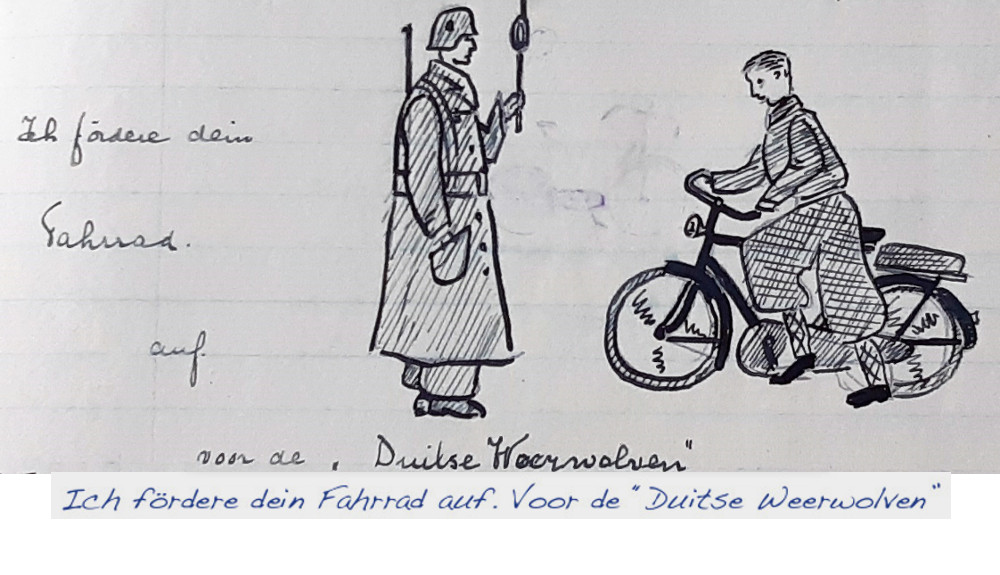 Ich fördere dein
Fahrrad.
auf.
voor de „ Duitse Weerwolven"
Ich fördere dein Fahrrad auf. Voor de "Duitse Weerwolven"